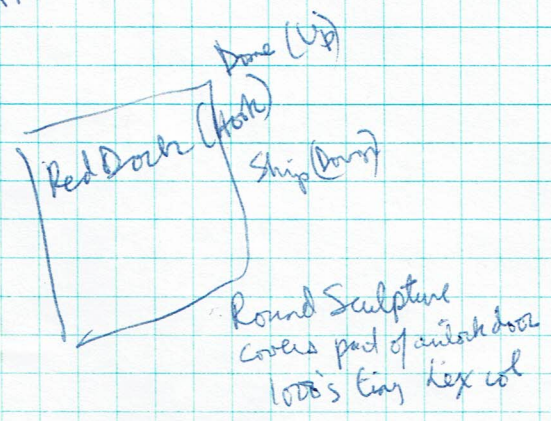 Dome (Up)
Red Door (Hook)
Ship (Down)
Round Sculpture
covers pad of airlock door
1000's tiny hex col